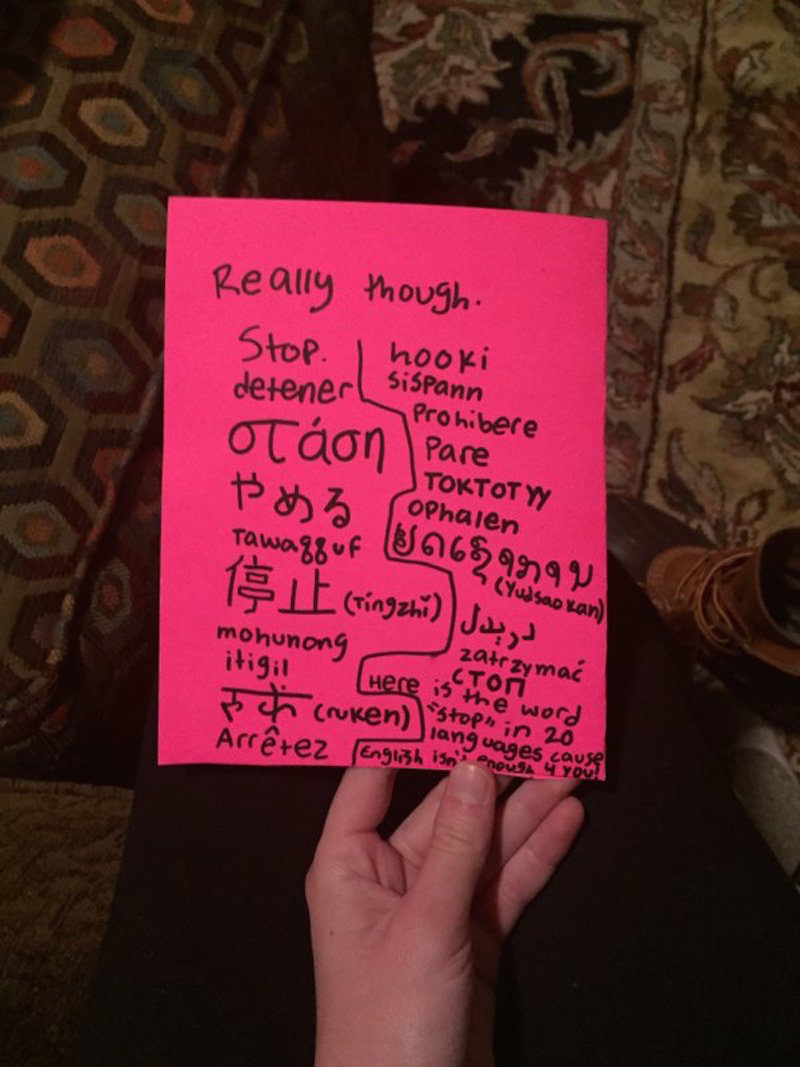 Really though.
Stop.
detener
στάση
やめる
Tawagguf
停止 (Tíngzhǐ)
mohunong
itigil
(ruken)
Arrêtez
hooki
sispann
Prohibere
Pare
ТОКТОТУУ
ophalen
(Yudsaokan)
دريدل
zatrzymać
СТОП
Here is the word
"stop" in 20
languages cause
English isn't enough 4 you!